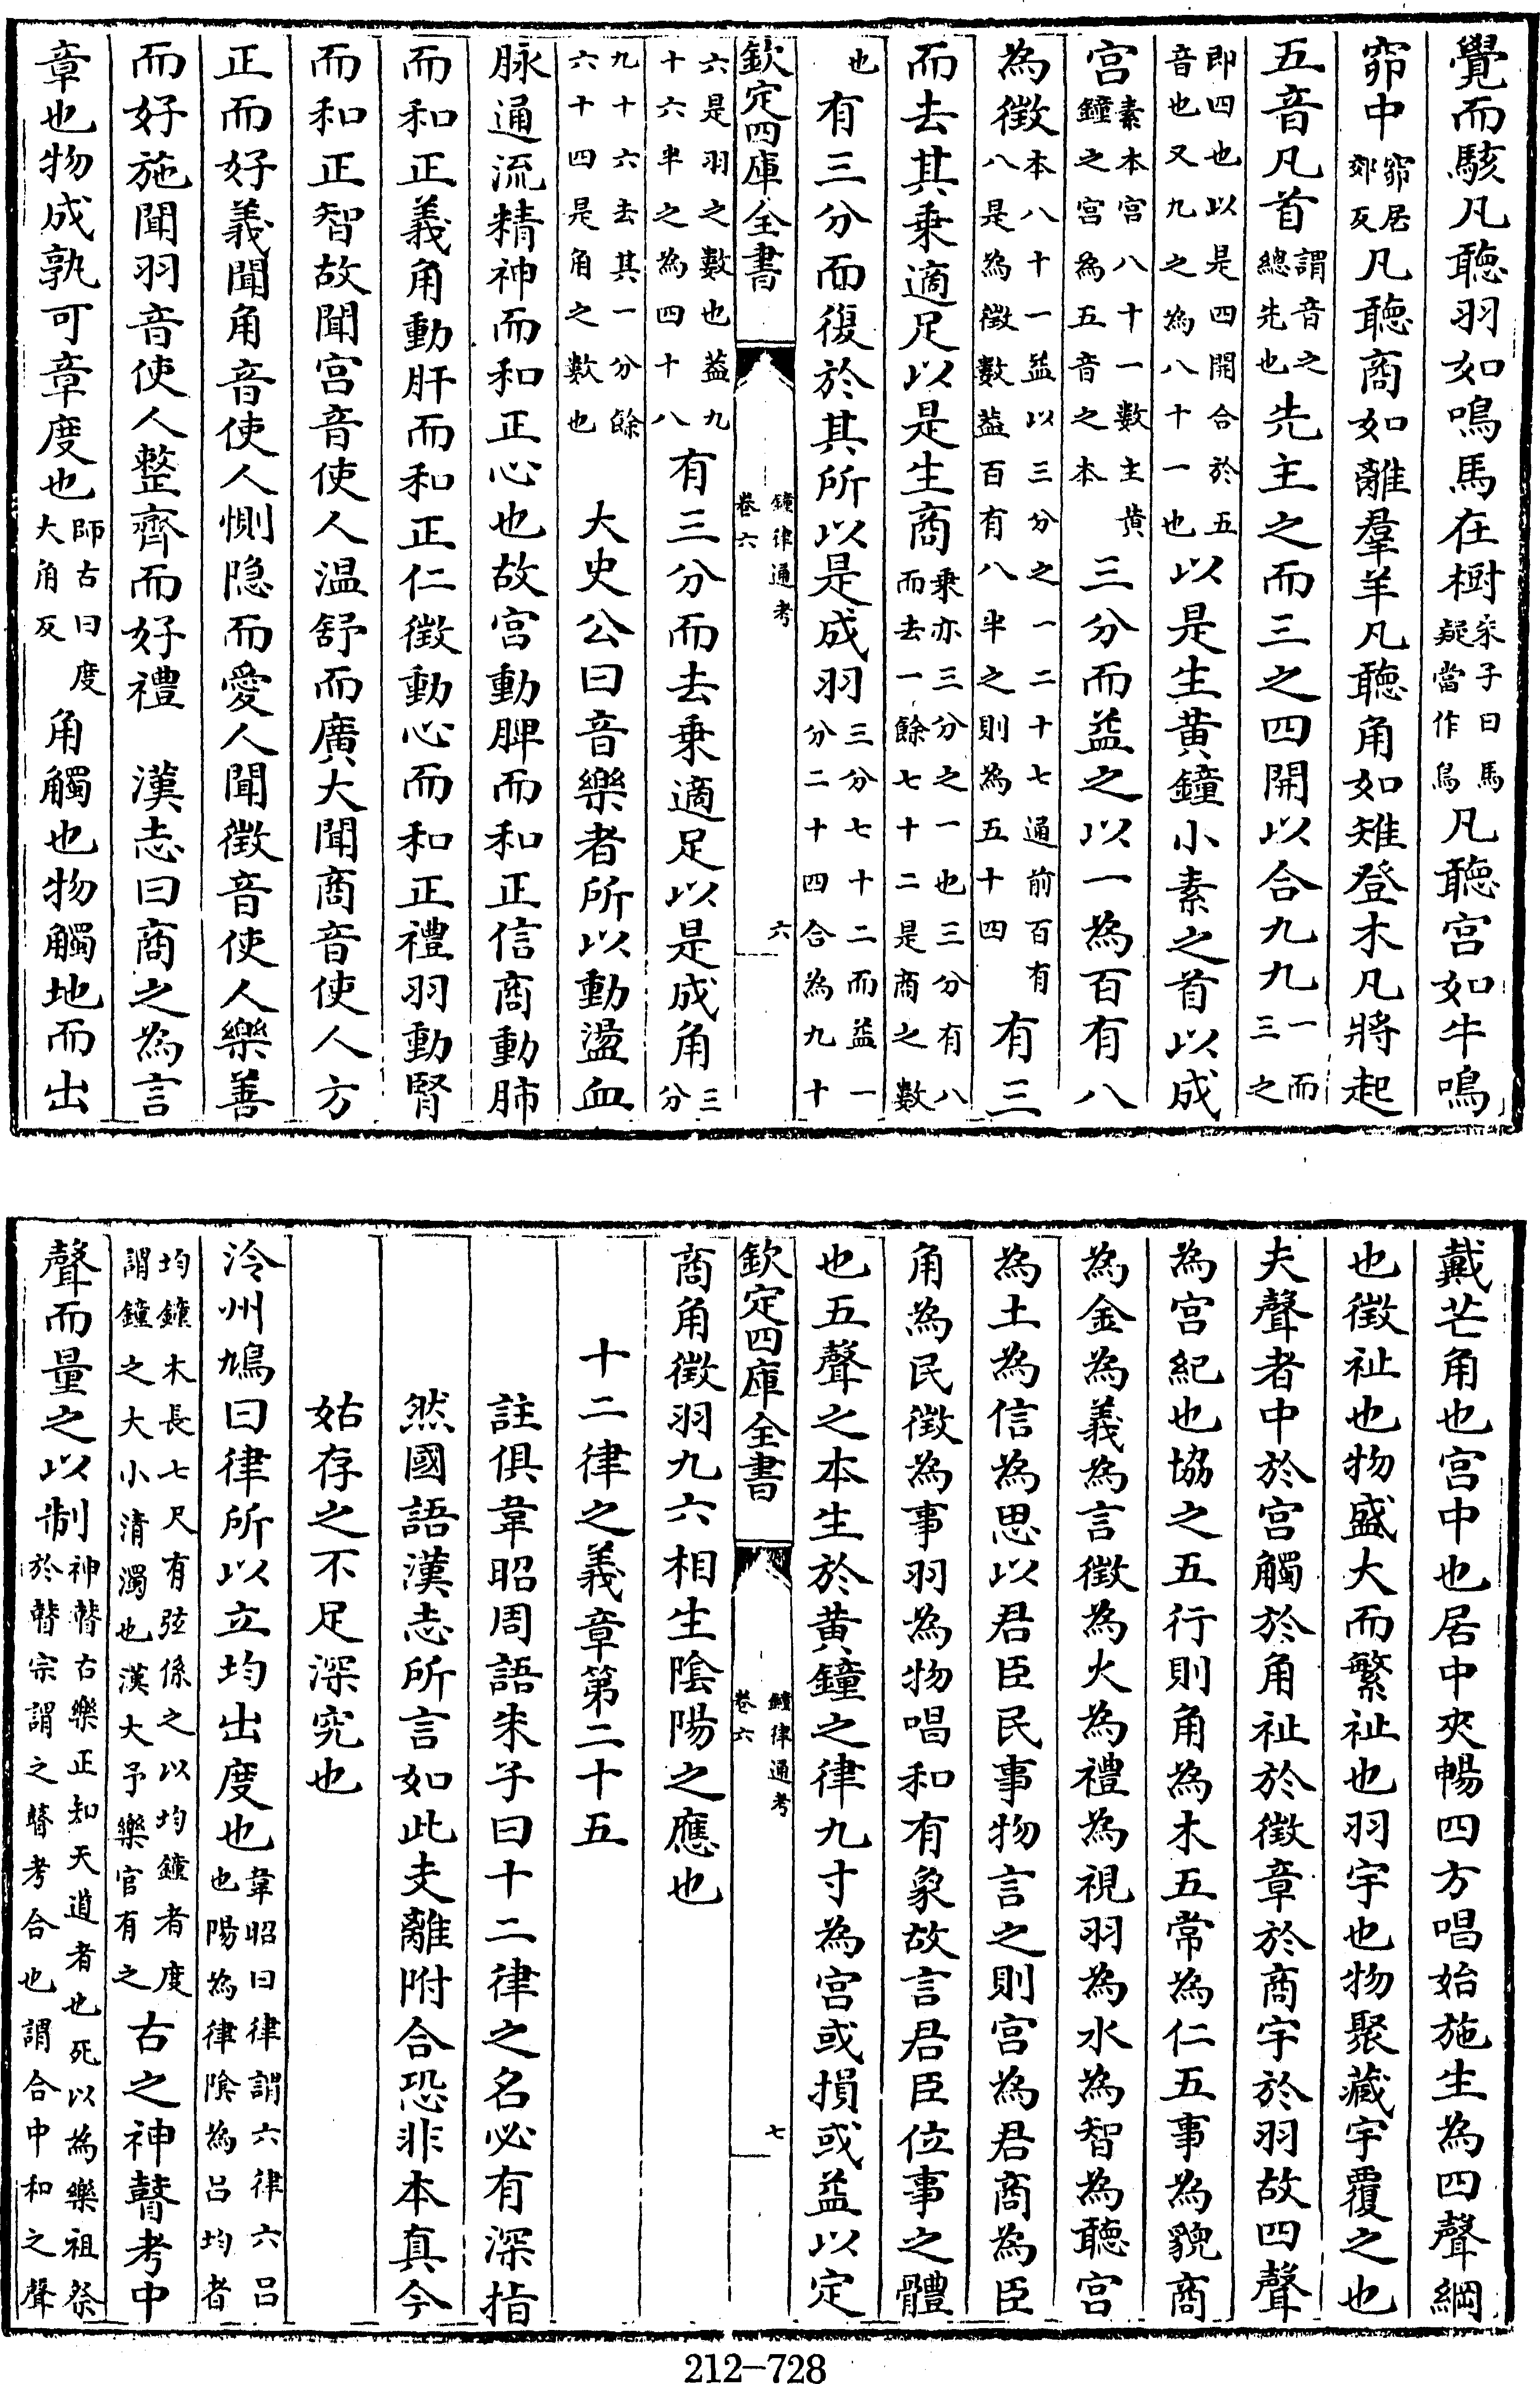 覺而駭凡聽羽如鳴馬在樹朱子曰馬疑當作鳥凡聽宫如牛鳴
窌中窌居郊反凡聽商如離羣羊凡聽角如雉登木凡將起
五音凡首謂音之總先也先主之而三之四開以合九九一而三之
即四也以是四開合於五音也又九之為八十一也以是生黄鐘小素之首以成
宫素本宫八十一數主黄鐘之宫為五音之本三分而益之以一為百有八
為徵本八十一益以三分之一二十七通前百有八是為徵數益百有八半之則為五十四有三
而去其乘適足以是生商乘亦三分之一也三分有八而去一餘七十二是商之數
也有三分而復於其所以是成羽三分七十二而益一分二十四合為九十
欽定四庫全書 鐘律通考 卷六 六
六是羽之數也益九十六半之為四十八有三分而去乘適足以是成角三分
九十六去其一分餘六十四是角之數也 大史公曰音樂者所以動盪血
脉通流精神而和正心也故宫動脾而和正信商動肺
而和正義角動肝而和正仁徵動心而和正禮羽動腎
而和正智故聞宫音使人温舒而廣大聞商音使人方
正而好義聞角音使人惻隐而愛人聞徵音使人樂善
而好施聞羽音使人整齊而好禮 漢志曰商之為言
章也物成孰可章度也師古曰度大角反角觸也物觸地而出
戴芒角也宫中也居中央暢四方唱始施生為四聲綱
也徵祉也物盛大而繁祉也羽宇也物聚藏宇覆之也
夫聲者中於宫觸於角祉於徵章於商宇於羽故四聲
為宫紀也協之五行則角為木五常為仁五事為貌商
為金為義為言徵為火為禮為視羽為水為智為聽宫
為土為信為思以君臣民事物言之則宫為君商為臣
角為民徵為事羽為物唱和有象故言君臣位事之體
也五聲之本生於黄鐘之律九寸為宫或損或益以定
欽定四庫全書 鐘律通考 卷六 七
商角徵羽九六相生陰陽之應也
十二律之義章第二十五
註俱韋昭周語朱子曰十二律之名必有深指
然國語漢志所言如此支離附合恐非本真今
姑存之不足深究也
泠州鳩曰律所以立均出度也韋昭曰律謂六律六吕也陽為律陰為吕均者
均鐘木長七尺有弦係之以均鐘者度謂鐘之大小清濁也漢大予樂官有之古之神瞽考中
聲而量之以制神瞽古樂正知天道者也死以為樂祖祭於瞽宗謂之瞽考合也謂合中和之聲
212-728